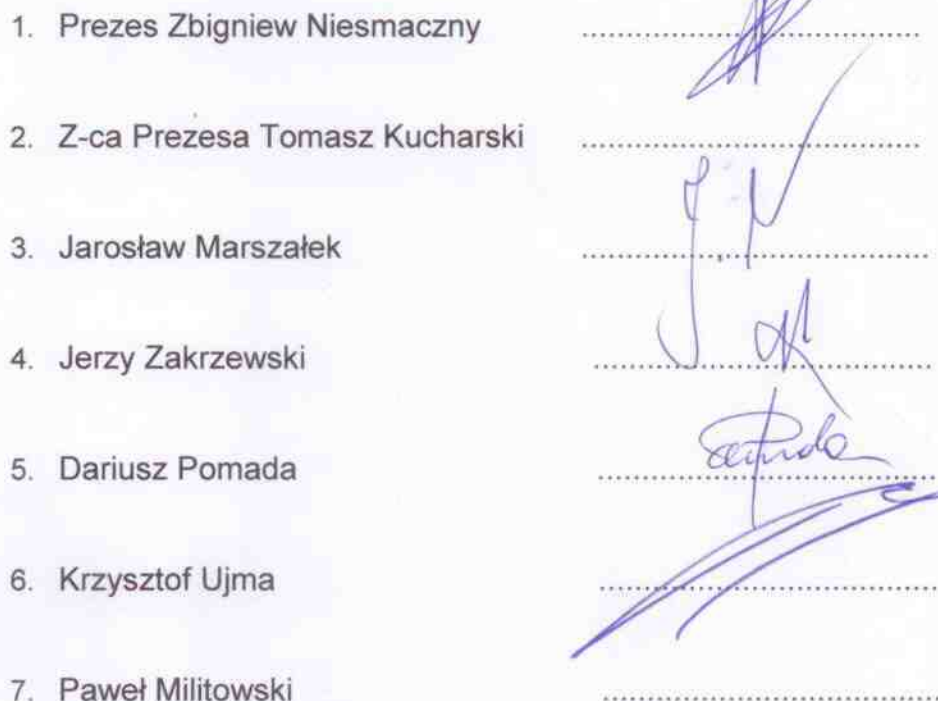 1. Prezes Zbigniew Niesmaczny ....................................
2. Z-ca Prezesa Tomasz Kucharski ....................................
3. Jarosław Marszałek ....................................
4. Jerzy Zakrzewski ....................................
5. Dariusz Pomada ....................................
6. Krzysztof Ujma ....................................
7. Paweł Militowski ....................................